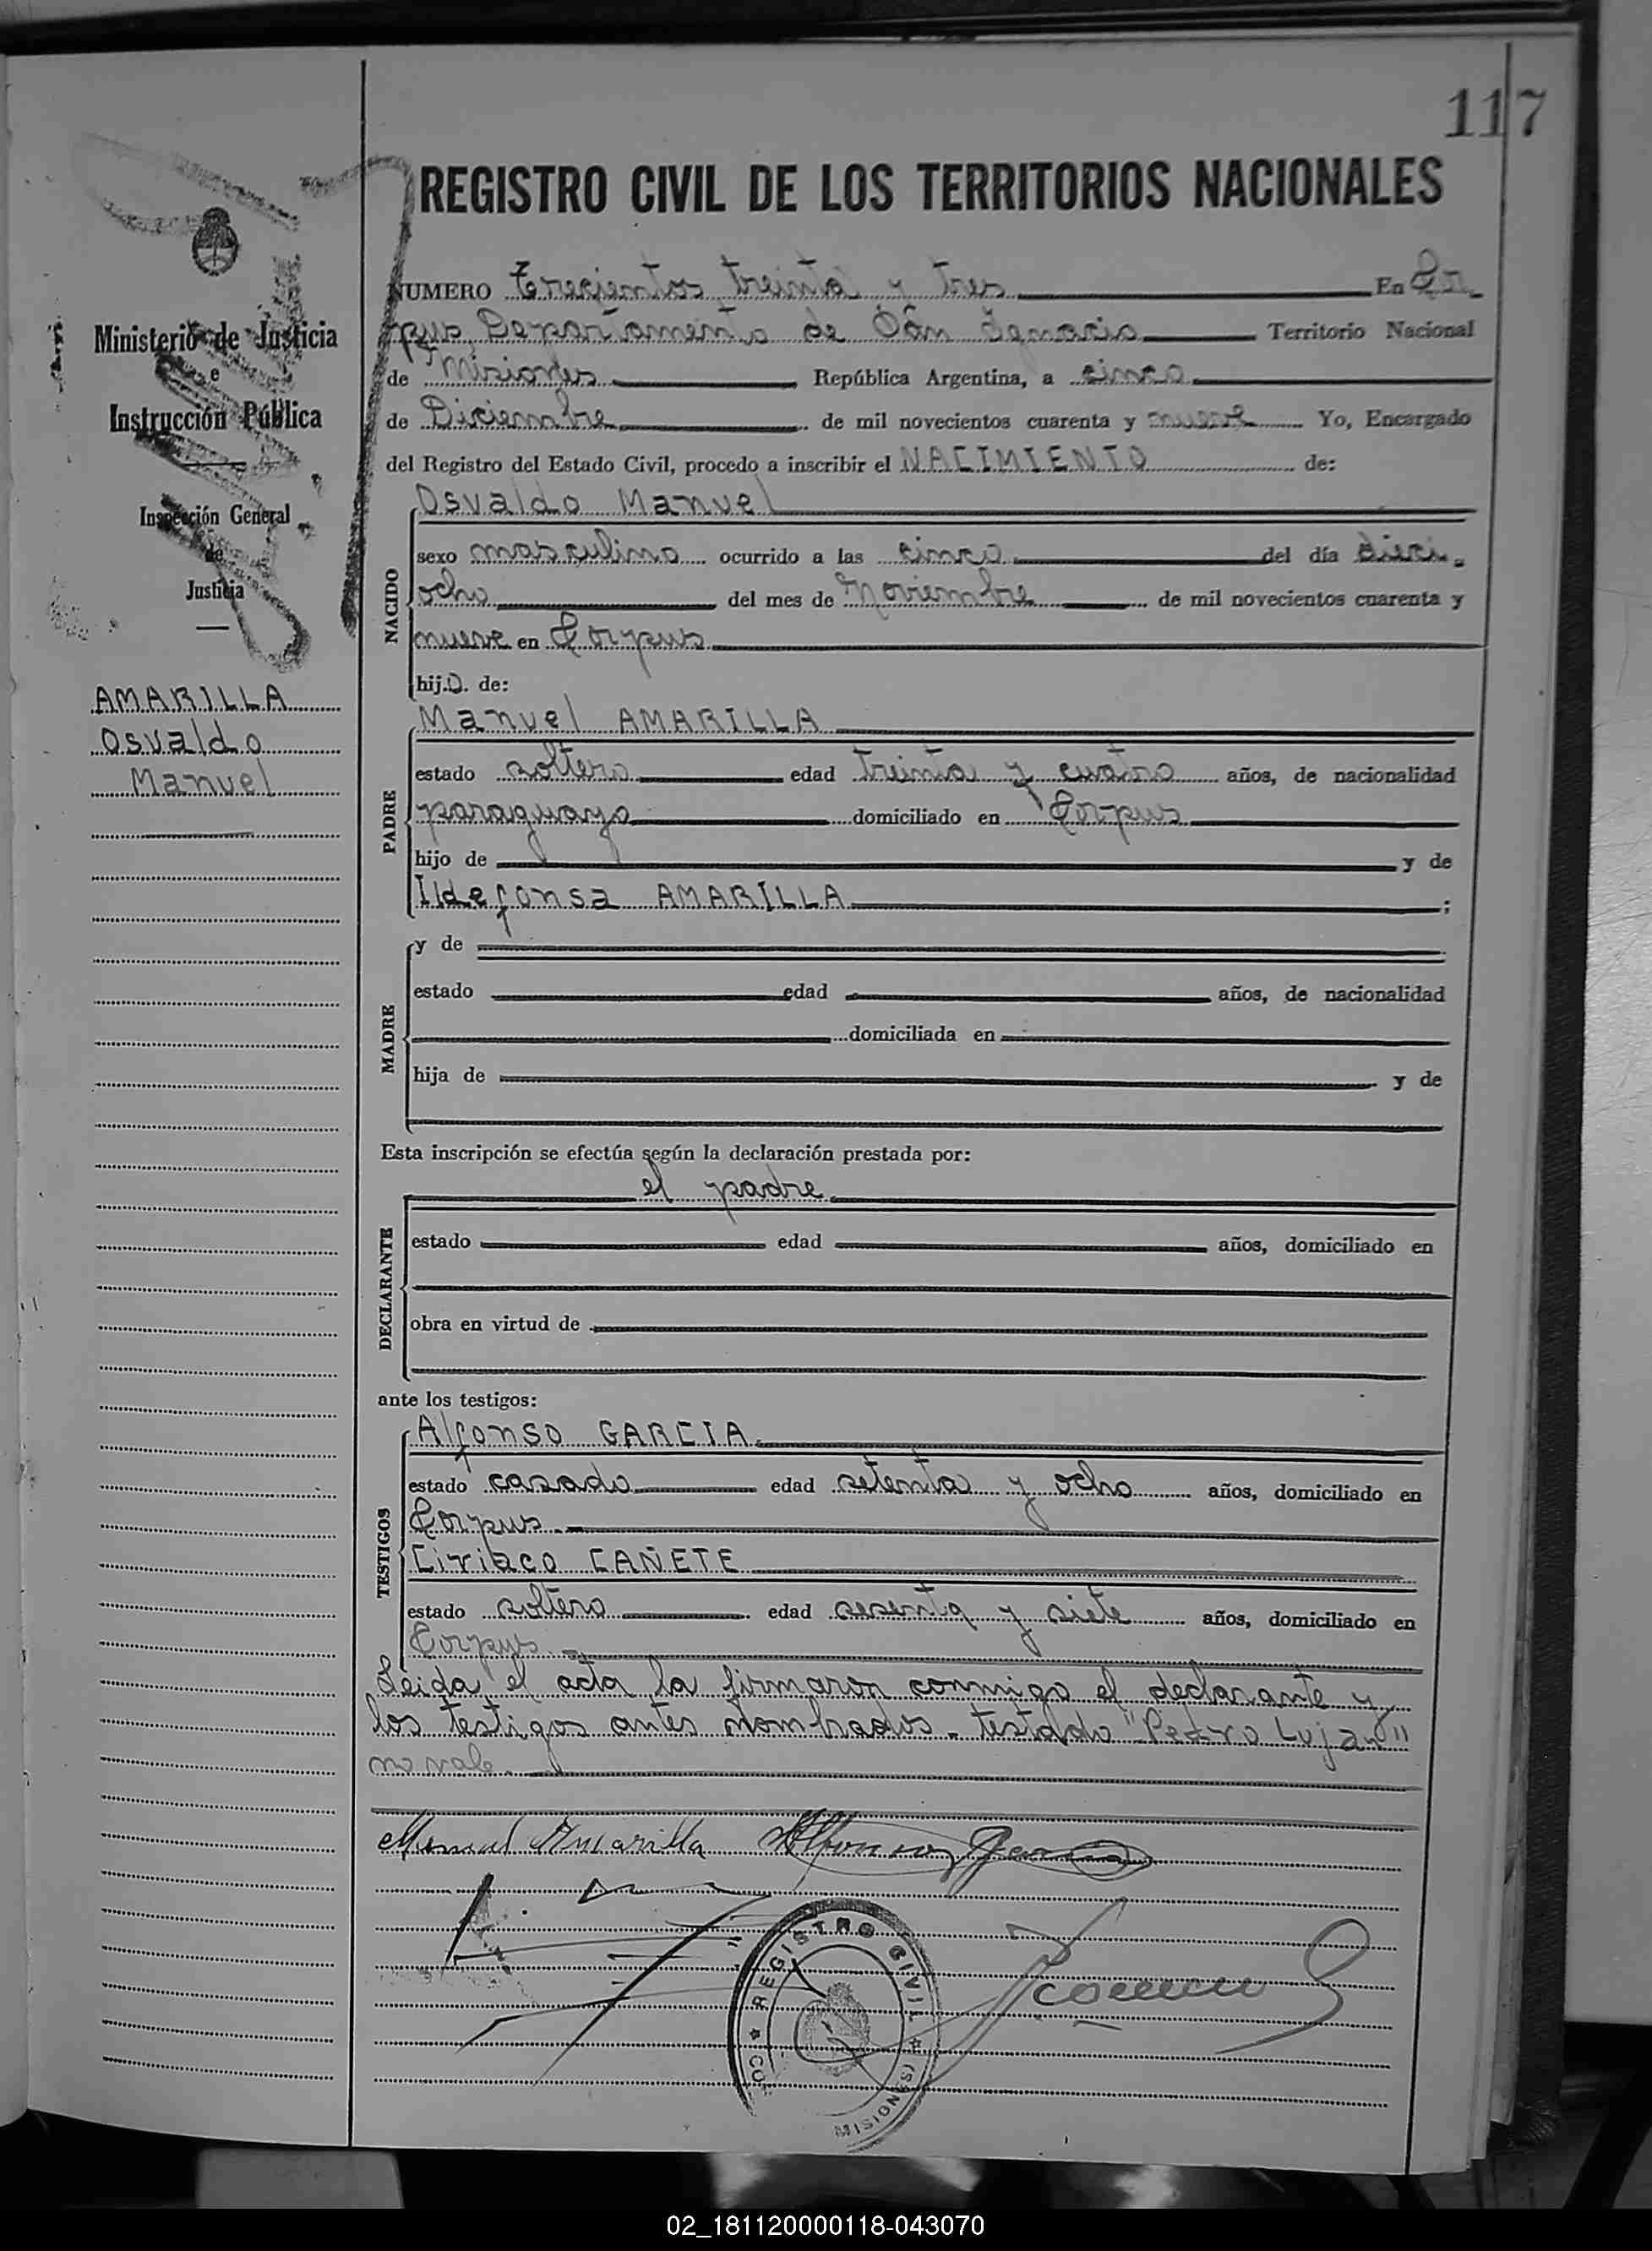 117
REGISTRO CIVIL DE LOS TERRITORIOS NACIONALES
Ministerio de Justicia
e
Instrucción Pública
Inspección General
de
Justicia
AMARILLA
Osvaldo
Manuel
NUMERO Trecientos treinta y tres En Cor
pus Departamento de San Ignacio Territorio Nacional
de Misiones República Argentina, a cinco
de Diciembre de mil novecientos cuarenta y nueve Yo, Encargado
del Registro del Estado Civil, procedo a inscribir el NACIMIENTO de:
NACIDO
Osvaldo Manuel
sexo masculino ocurrido a las cinco del día dieci-
ocho del mes de Noviembre de mil novecientos cuarenta y
nueve en Corpus
hijo. de:
PADRE
Manuel AMARILLA
estado soltero edad treinta y cuatro años, de nacionalidad
paraguayo domiciliado en Corpus
hijo de y de
Ildefonsa AMARILLA ;
MADRE
y de
estado edad años, de nacionalidad
domiciliada en
hija de y de
Esta inscripción se efectúa según la declaración prestada por:
DECLARANTE
el padre
estado edad años, domiciliado en
obra en virtud de
ante los testigos:
TESTIGOS
Alfonso GARCIA
estado casado edad setenta y ocho años, domiciliado en
Corpus.-
Ciriaco CAÑETE
estado soltero edad sesenta y siete años, domiciliado en
Corpus.-
Leida el acta la firmaron conmigo el declarante y
los testigos antes nombrados.- testado "Pedro Lujan"
no vale.-
Manuel Amarilla Alfonso Garcia
REGISTRO CIVIL
(MISIONES)
02_181120000118-043070